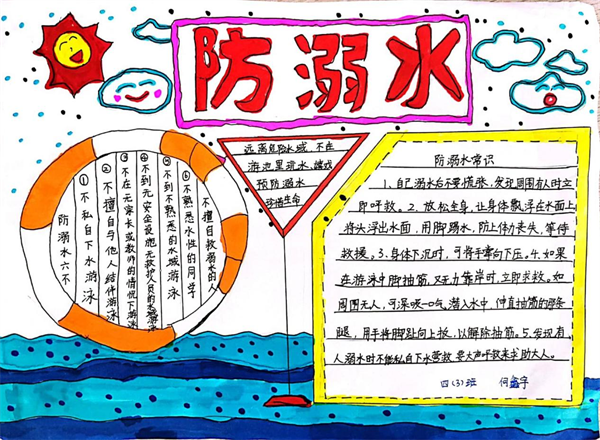 防溺水
防溺水六不
①不私自下水游泳
②不擅自与他人结伴游泳
③不在无家长或教师的情况下游泳
④不到无安全设施无救护人员的水域游泳
⑤不到不熟悉的水域游泳
⑥不熟悉水性的同学
不擅自救溺水的人
远离危险水域,不在
游池里疏水、嬉戏
预防溺水
珍惜生命
防溺水常识
1、自己溺水后不要慌张,发现周围有人时立
即呼救。2、放松全身,让身体飘浮在水面上
将头浮出水面,用脚踢水,防止体力丧失,等待
救援。3、身体下沉时,可将手掌向下压。4、如果
在游泳中脚抽筋,又无力靠岸时,立即求救。如
周围无人,可深吸一口气,潜入水中,伸直抽筋的那条
腿,用手将脚趾向上扳,以解除抽筋。5、发现有
人溺水时不能私自下水营救 要大声呼救来求助大人。
四(3)班 何鑫宇